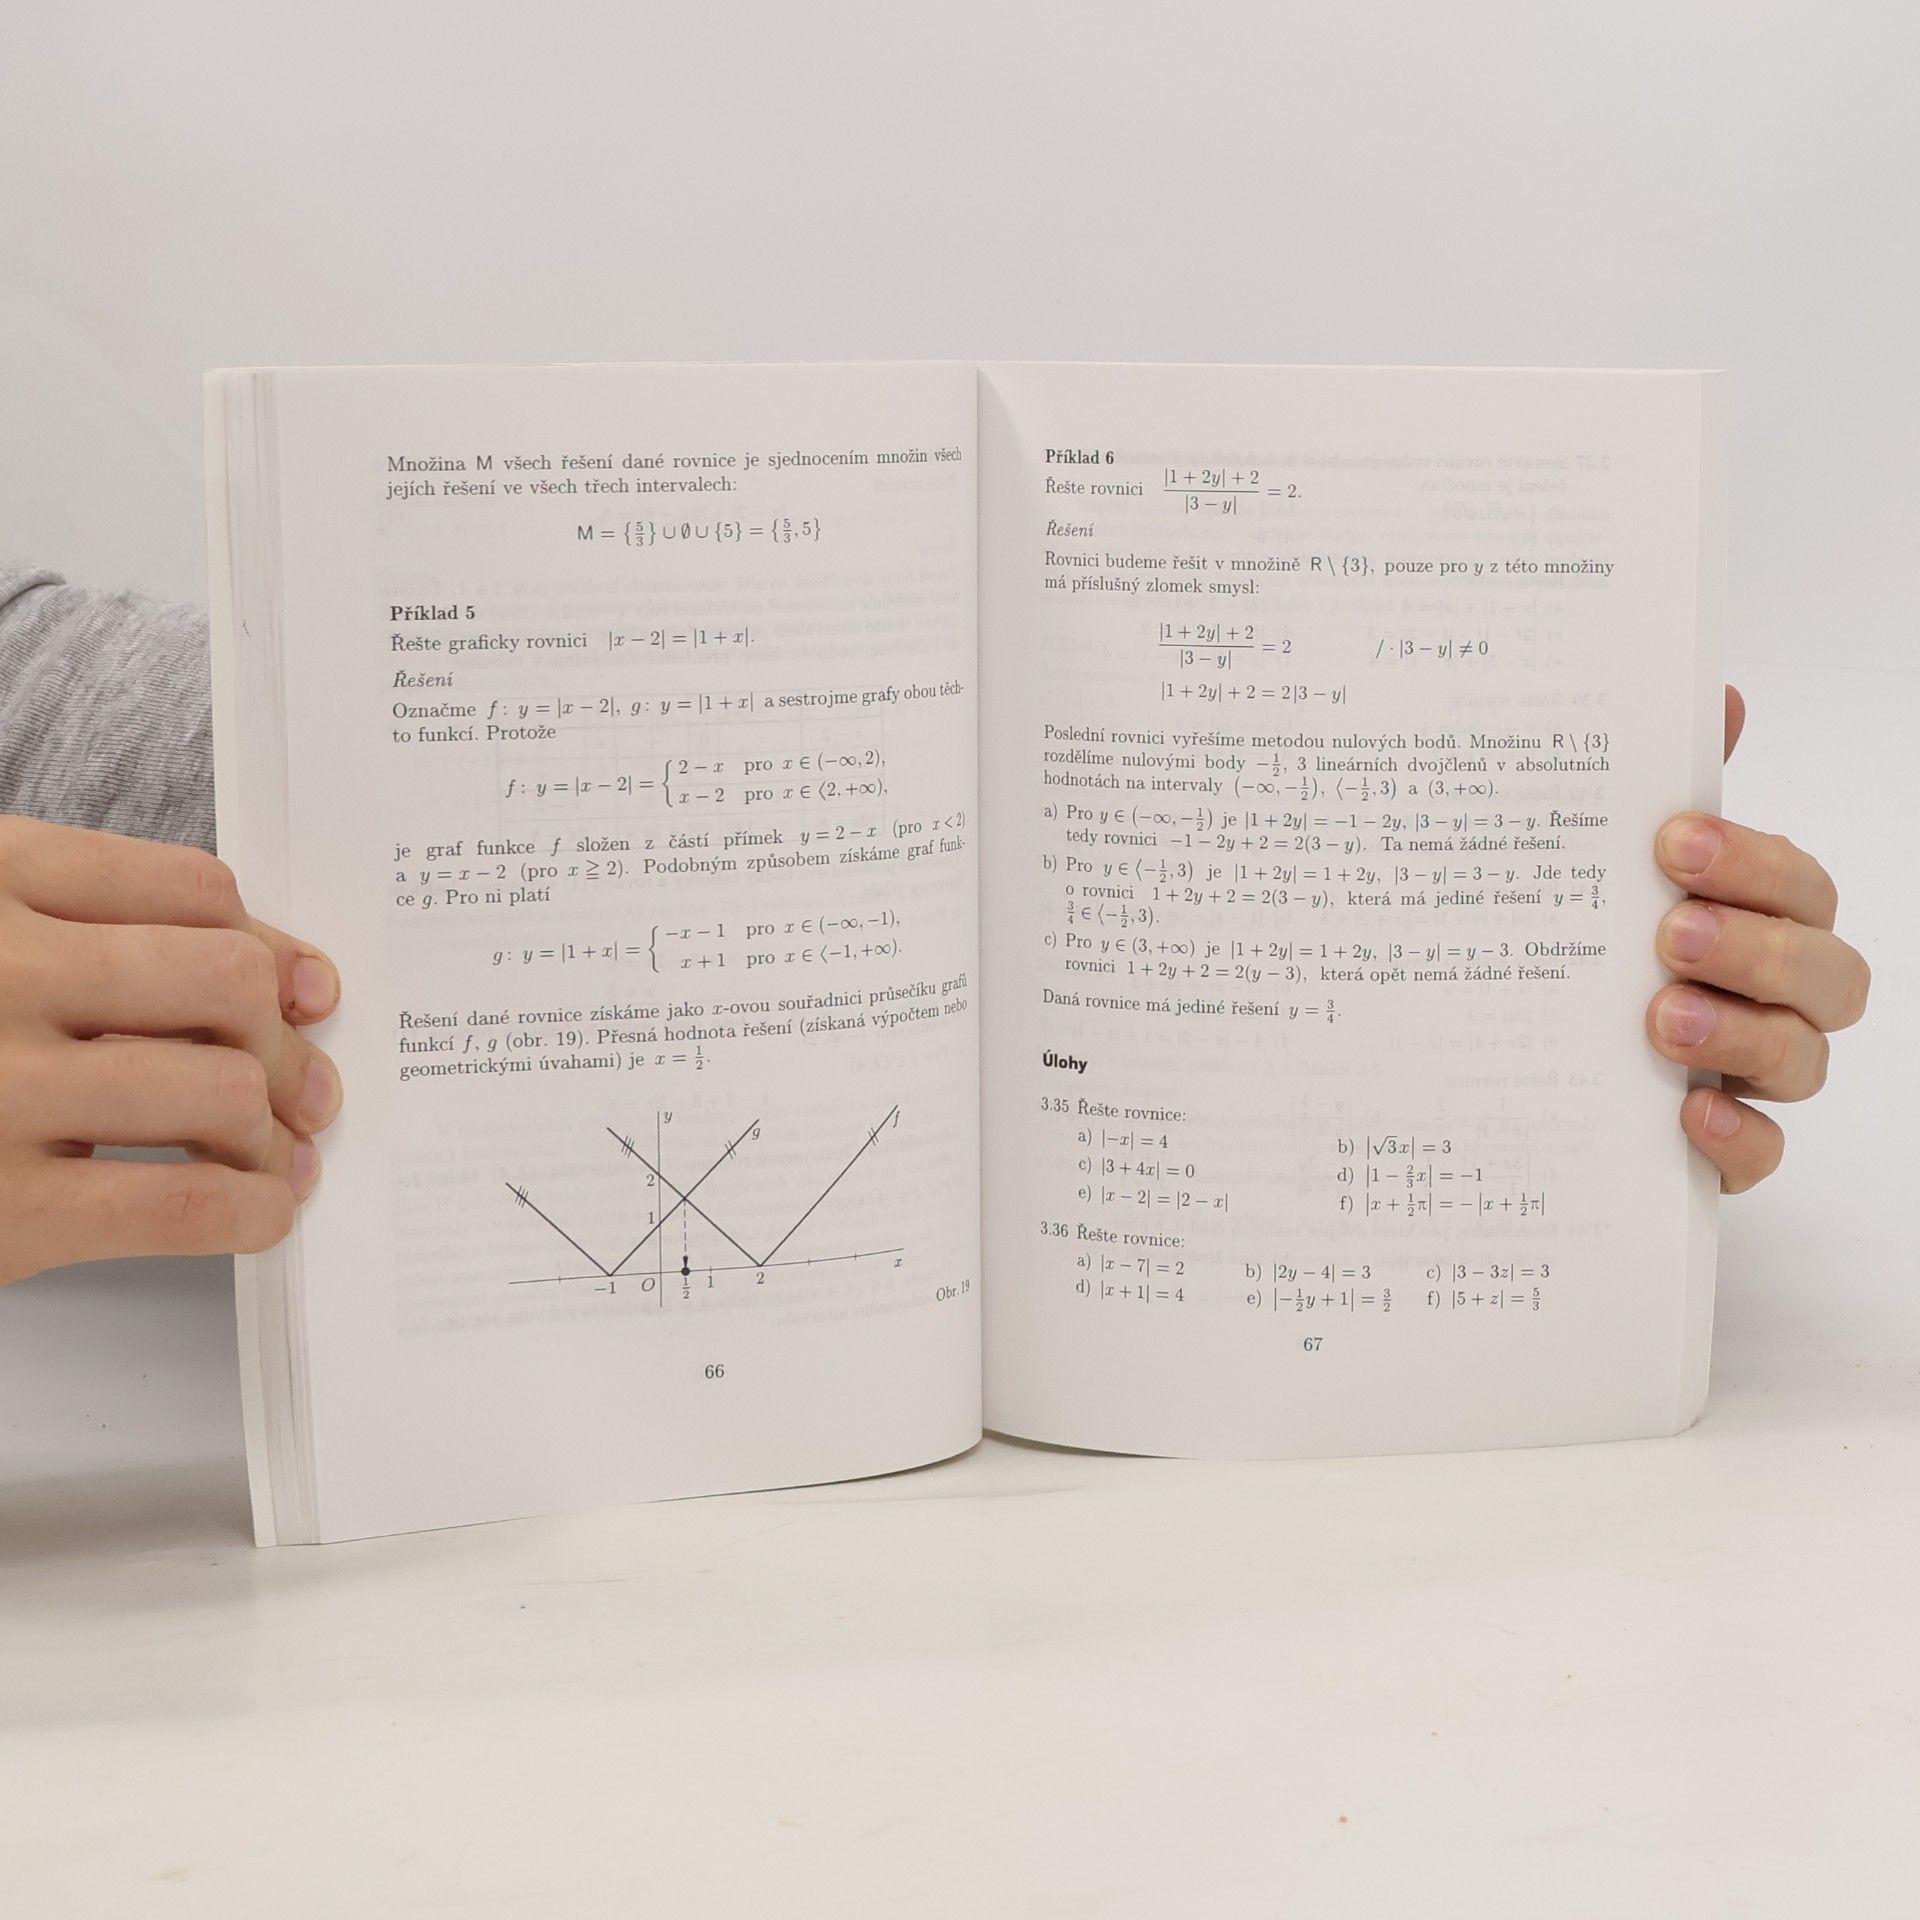 Množina M všech řešení dané rovnice je sjednocením množin všech
jejích řešení ve všech třech intervalech:
M = {5/3} ∪ ∅ ∪ {5} = {5/3, 5}
Příklad 5
Řešte graficky rovnici |x − 2| = |1 + x|.
Řešení
Označme f: y = |x − 2|, g: y = |1 + x| a sestrojme grafy obou těch-
to funkcí. Protože
f: y = |x − 2| = { 2 − x pro x ∈ (−∞, 2),
x − 2 pro x ∈ ⟨2, +∞),
je graf funkce f složen z částí přímek y = 2 − x (pro x < 2)
a y = x − 2 (pro x ≧ 2). Podobným způsobem získáme graf funk-
ce g. Pro ni platí
g: y = |1 + x| = { −x − 1 pro x ∈ (−∞, −1),
x + 1 pro x ∈ ⟨−1, +∞).
Řešení dané rovnice získáme jako x-ovou souřadnici průsečíku grafů
funkcí f, g (obr. 19). Přesná hodnota řešení (získaná výpočtem nebo
geometrickými úvahami) je x = 1/2.
y
g
f
2
1
x
−1 O 1/2 1 2
Obr. 19
66
Příklad 6
Řešte rovnici (|1 + 2y| + 2)/|3 − y| = 2.
Řešení
Rovnici budeme řešit v množině R \ {3}, pouze pro y z této množiny
má příslušný zlomek smysl:
(|1 + 2y| + 2)/|3 − y| = 2 / · |3 − y| ≠ 0
|1 + 2y| + 2 = 2|3 − y|
Poslední rovnici vyřešíme metodou nulových bodů. Množinu R \ {3}
rozdělíme nulovými body −1/2, 3 lineárních dvojčlenů v absolutních
hodnotách na intervaly (−∞, −1/2), ⟨−1/2, 3) a (3, +∞).
a) Pro y ∈ (−∞, −1/2) je |1 + 2y| = −1 − 2y, |3 − y| = 3 − y. Řešíme
tedy rovnici −1 − 2y + 2 = 2(3 − y). Ta nemá žádné řešení.
b) Pro y ∈ ⟨−1/2, 3) je |1 + 2y| = 1 + 2y, |3 − y| = 3 − y. Jde tedy
o rovnici 1 + 2y + 2 = 2(3 − y), která má jediné řešení y = 3/4,
3/4 ∈ ⟨−1/2, 3).
c) Pro y ∈ (3, +∞) je |1 + 2y| = 1 + 2y, |3 − y| = y − 3. Obdržíme
rovnici 1 + 2y + 2 = 2(y − 3), která opět nemá žádné řešení.
Daná rovnice má jediné řešení y = 3/4.
Úlohy
3.35 Řešte rovnice:
a) |−x| = 4 b) |√3x| = 3
c) |3 + 4x| = 0 d) |1 − 2/3x| = −1
e) |x − 2| = |2 − x| f) |x + 1/2π| = −|x + 1/2π|
3.36 Řešte rovnice:
a) |x − 7| = 2 b) |2y − 4| = 3 c) |3 − 3z| = 3
d) |x + 1| = 4 e) |−1/2y + 1| = 3/2 f) |5 + z| = 5/3
67